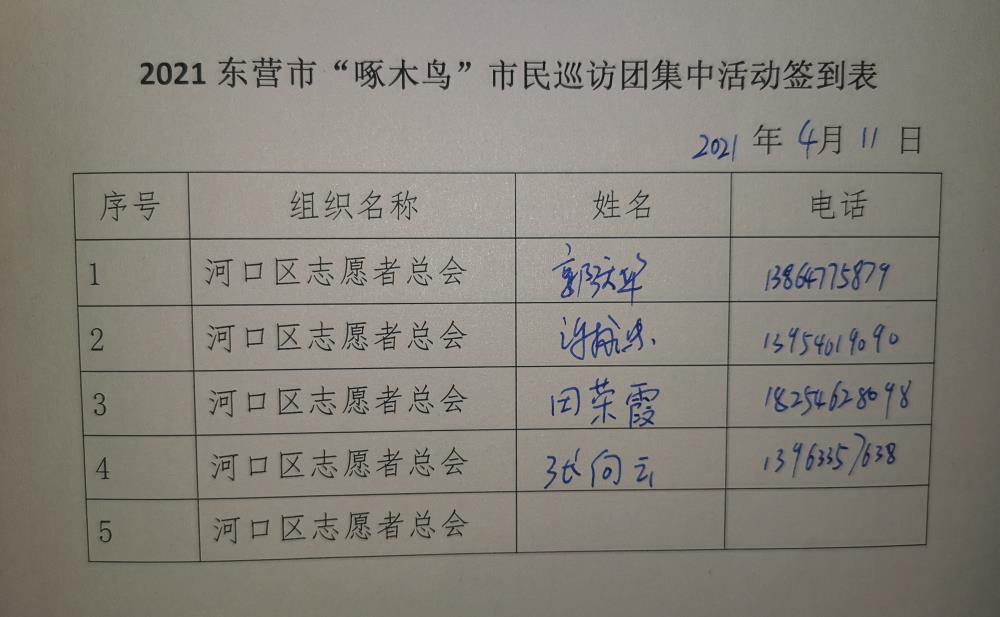 2021东营市“啄木鸟”市民巡访团集中活动签到表
2021年4月11日
序号 组织名称 姓名 电话
1 河口区志愿者总会 13864775879
2 河口区志愿者总会 13954019090
3 河口区志愿者总会 田荣霞 18254628098
4 河口区志愿者总会 张向云 13963357638
5 河口区志愿者总会